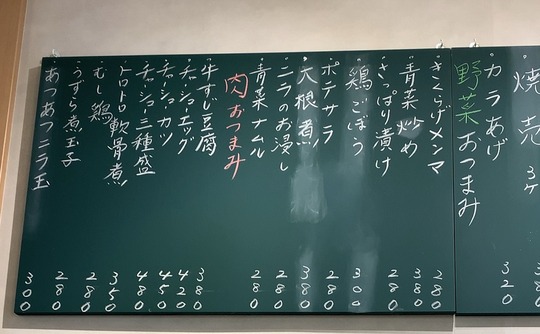 焼売 3ケ 380
カラあげ 320
野菜おつまみ
きくらげメンマ 280
青菜炒め 380
さっぱり漬け 280
鶏ごぼう 300
ポテサラ 280
大根煮 380
ニラのお浸し 280
青菜ナムル 280
肉おつまみ
牛すじ豆腐 380
チャーシューエッグ 420
チャーシューカツ 450
チャーシュー三種盛 480
トロトロ軟骨煮 350
むし鶏 280
うずら煮玉子 280
あつあつニラ玉 300